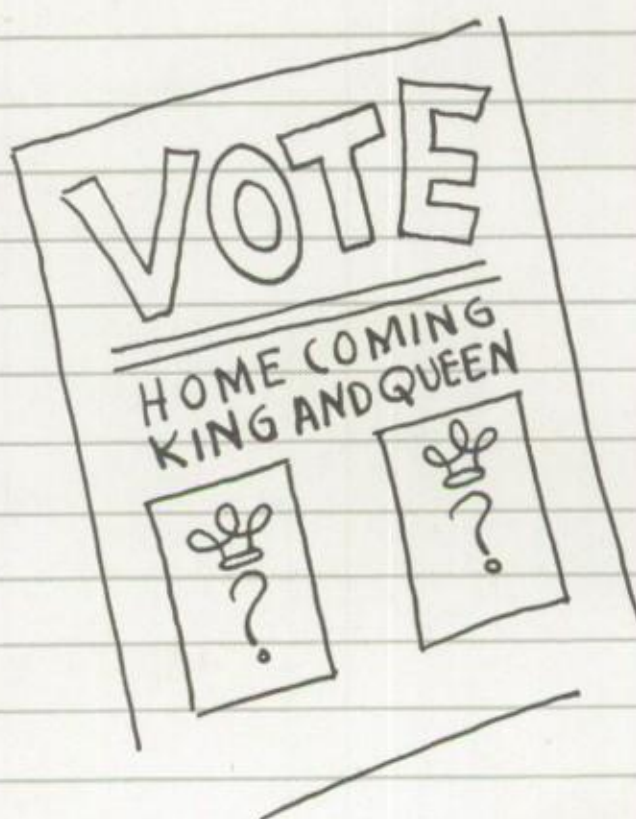 VOTE
HOME COMING
KING AND QUEEN
? ?